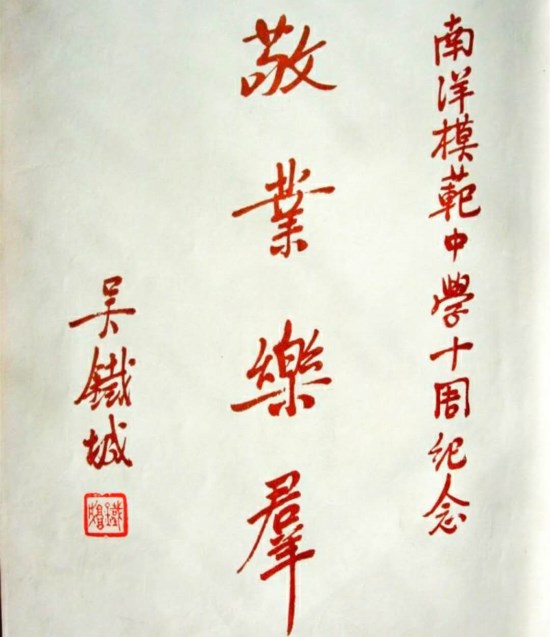 南洋模範中學十周紀念
敬業樂羣
吳鐵城